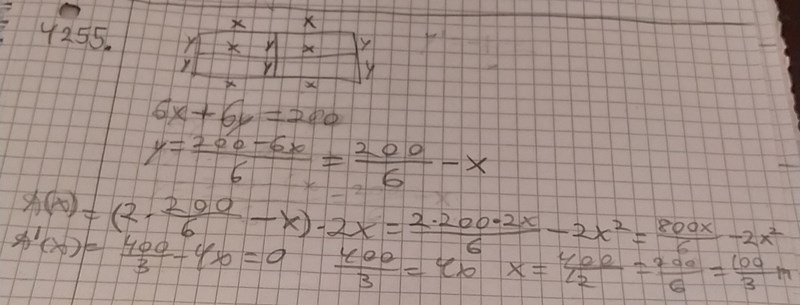 4255.
x x
y x y x y
y y y
x x
6x + 6y = 200
y = \frac{200-6x}{6} = \frac{200}{6} - x
A(x) = (2 \cdot \frac{200}{6} - x) \cdot 2x = \frac{2 \cdot 200 \cdot 2x}{6} - 2x^2 = \frac{800x}{6} - 2x^2
A'(x) = \frac{400}{3} - 4x = 0 \frac{400}{3} = 4x x = \frac{400}{12} = \frac{200}{6} = \frac{100}{3} m